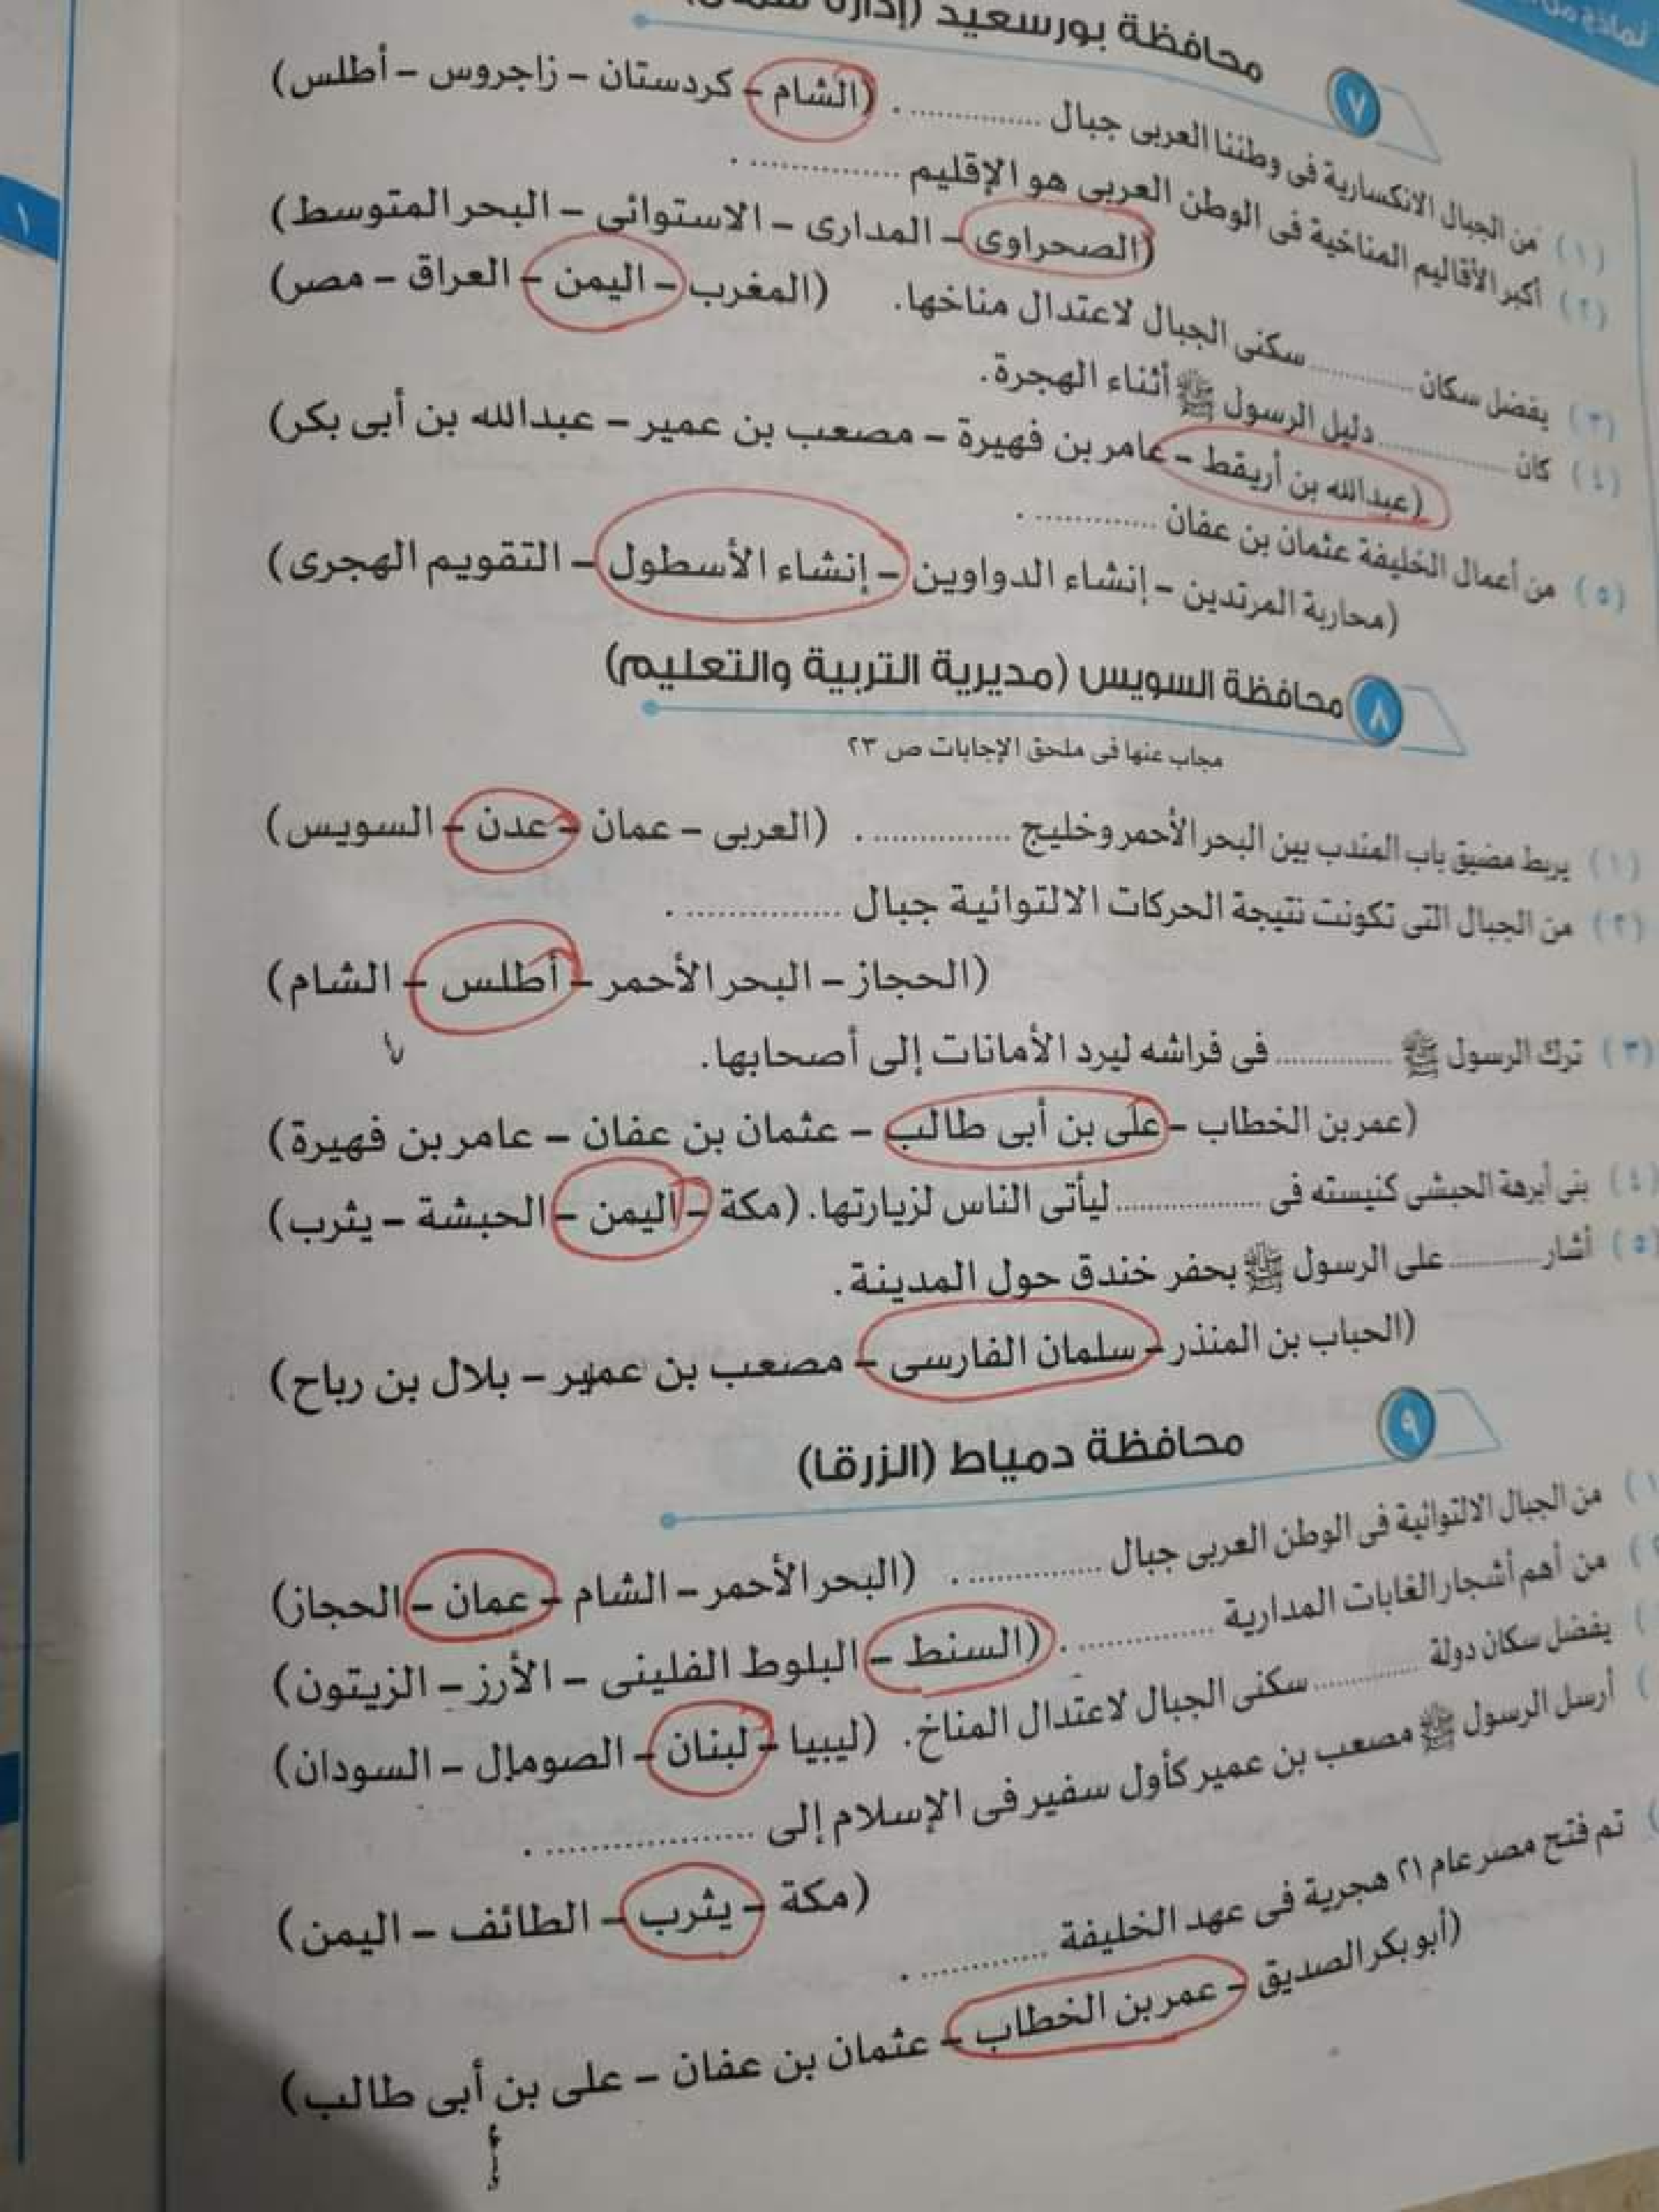 محافظة بورسعيد (إدارة
٧
(١) من الجبال الانكسارية فى وطننا العربى جبال ............... . (الشام – كردستان – زاجروس – أطلس)
(٢) أكبر الأقاليم المناخية فى الوطن العربى هو الإقليم ............... .
(الصحراوى – المدارى – الاستوائى – البحر المتوسط)
(٣) يفضل سكان ............... سكنى الجبال لاعتدال مناخها. (المغرب – اليمن – العراق – مصر)
(٤) كان ............... دليل الرسول ﷺ أثناء الهجرة.
(عبدالله بن أريقط – عامر بن فهيرة – مصعب بن عمير – عبدالله بن أبى بكر)
(٥) من أعمال الخليفة عثمان بن عفان ............... .
(محاربة المرتدين – إنشاء الدواوين – إنشاء الأسطول – التقويم الهجرى)
٨ محافظة السويس (مديرية التربية والتعليم)
مجاب عنها فى ملحق الإجابات ص ٢٣
(١) يربط مضيق باب المندب بين البحر الأحمر وخليج ............... . (العربى – عمان – عدن – السويس)
(٢) من الجبال التى تكونت نتيجة الحركات الالتوائية جبال ............... .
(الحجاز – البحر الأحمر – أطلس – الشام)
(٣) ترك الرسول ﷺ ............... فى فراشه ليرد الأمانات إلى أصحابها.
(عمر بن الخطاب – على بن أبى طالب – عثمان بن عفان – عامر بن فهيرة)
(٤) بنى أبرهة الحبشى كنيسته فى ............... ليأتى الناس لزيارتها. (مكة – اليمن – الحبشة – يثرب)
(٥) أشار ............... على الرسول ﷺ بحفر خندق حول المدينة.
(الحباب بن المنذر – سلمان الفارسى – مصعب بن عمير – بلال بن رباح)
٩ محافظة دمياط (الزرقا)
من الجبال الالتوائية فى الوطن العربى جبال ............... . (البحر الأحمر – الشام – عمان – الحجاز)
من أهم أشجار الغابات المدارية ............... . (السنط – البلوط الفلينى – الأرز – الزيتون)
يفضل سكان دولة ............... سكنى الجبال لاعتدال المناخ. (ليبيا – لبنان – الصومال – السودان)
أرسل الرسول ﷺ مصعب بن عمير كأول سفير فى الإسلام إلى ............... .
(مكة – يثرب – الطائف – اليمن)
تم فتح مصر عام ٢١ هجرية فى عهد الخليفة ............... .
(أبو بكر الصديق – عمر بن الخطاب – عثمان بن عفان – على بن أبى طالب)